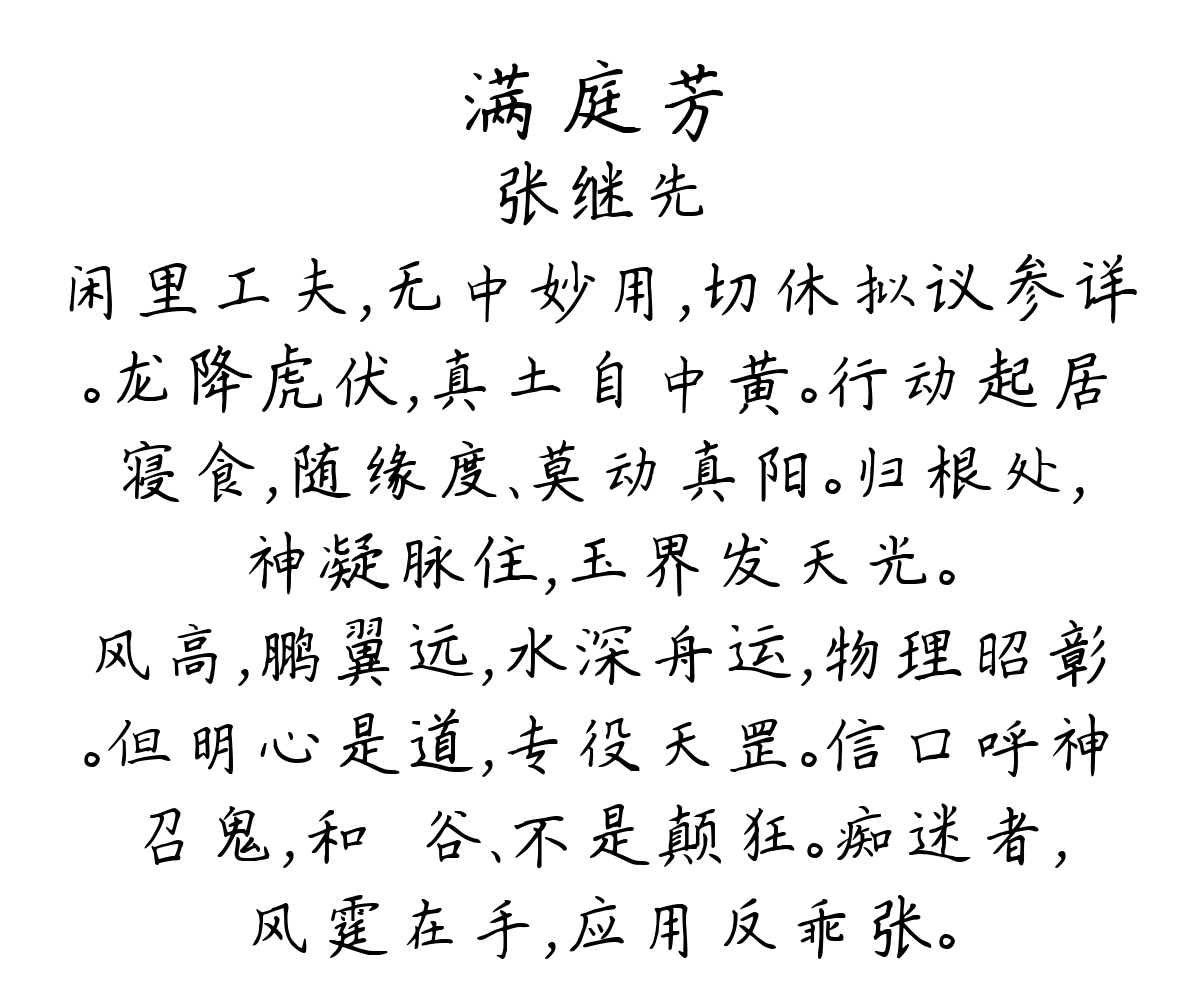 满庭芳
张继先
闲里工夫,无中妙用,切休拟议参详
。龙降虎伏,真土自中黄。行动起居
寝食,随缘度、莫动真阳。归根处,
神凝脉住,玉界发天光。
风高,鹏翼远,水深舟运,物理昭彰
。但明心是道,专役天罡。信口呼神
召鬼,和 谷、不是颠狂。痴迷者,
风霆在手,应用反乖张。